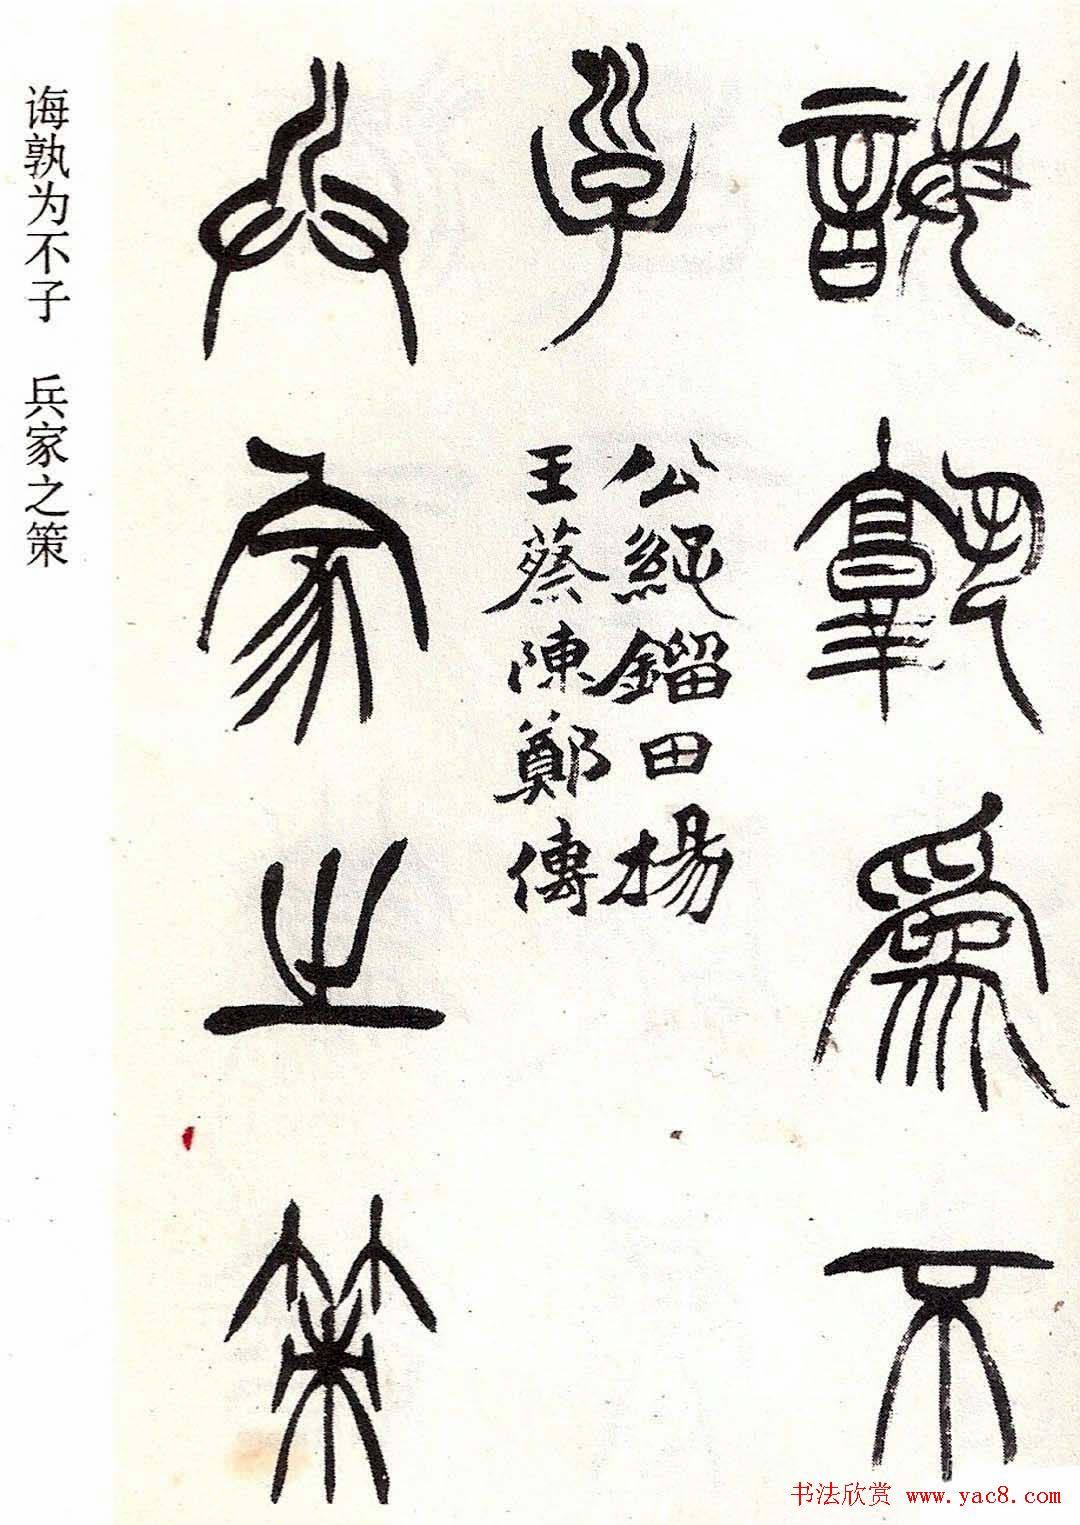 誨孰為不
子
公鎦田楊
王蔡陳鄭傳
兵家之策
诲孰为不子　兵家之策
书法欣赏 www.yac8.com